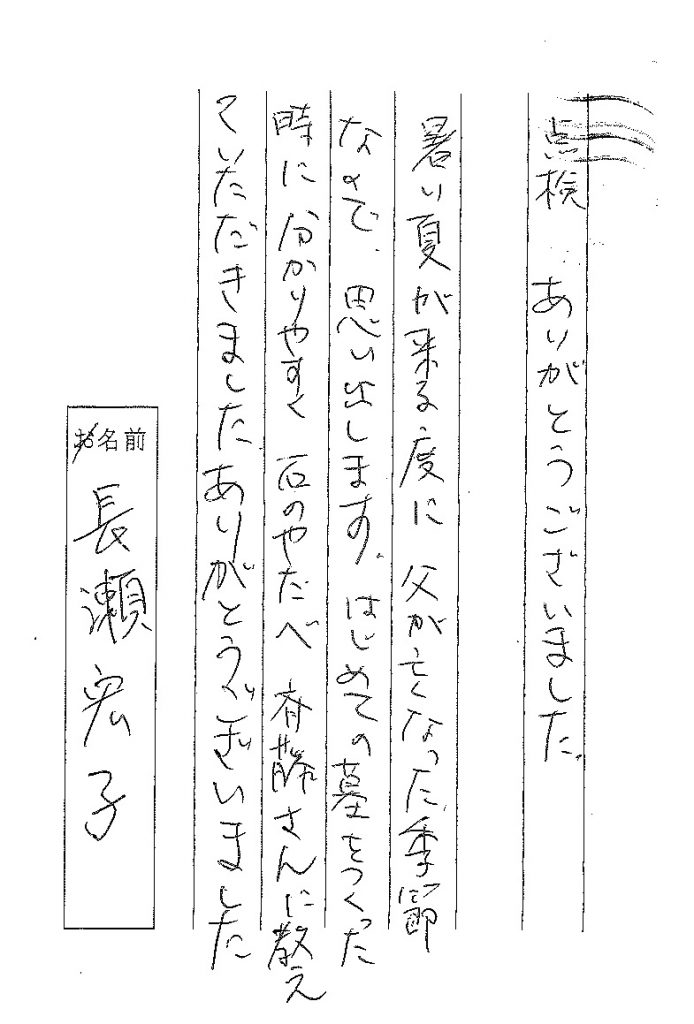 点検 ありがとうございました。
暑い夏が来る度に 父が亡くなった季節
なので、思い出します。はじめての墓をつくった
時に 分かりやすく 石のやたべ 斉藤さんに教え
ていただきました ありがとうございました
お名前
長瀬宏子